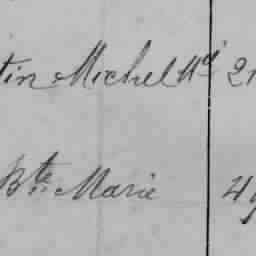 tin Michel Md 21
Bte Marie 49